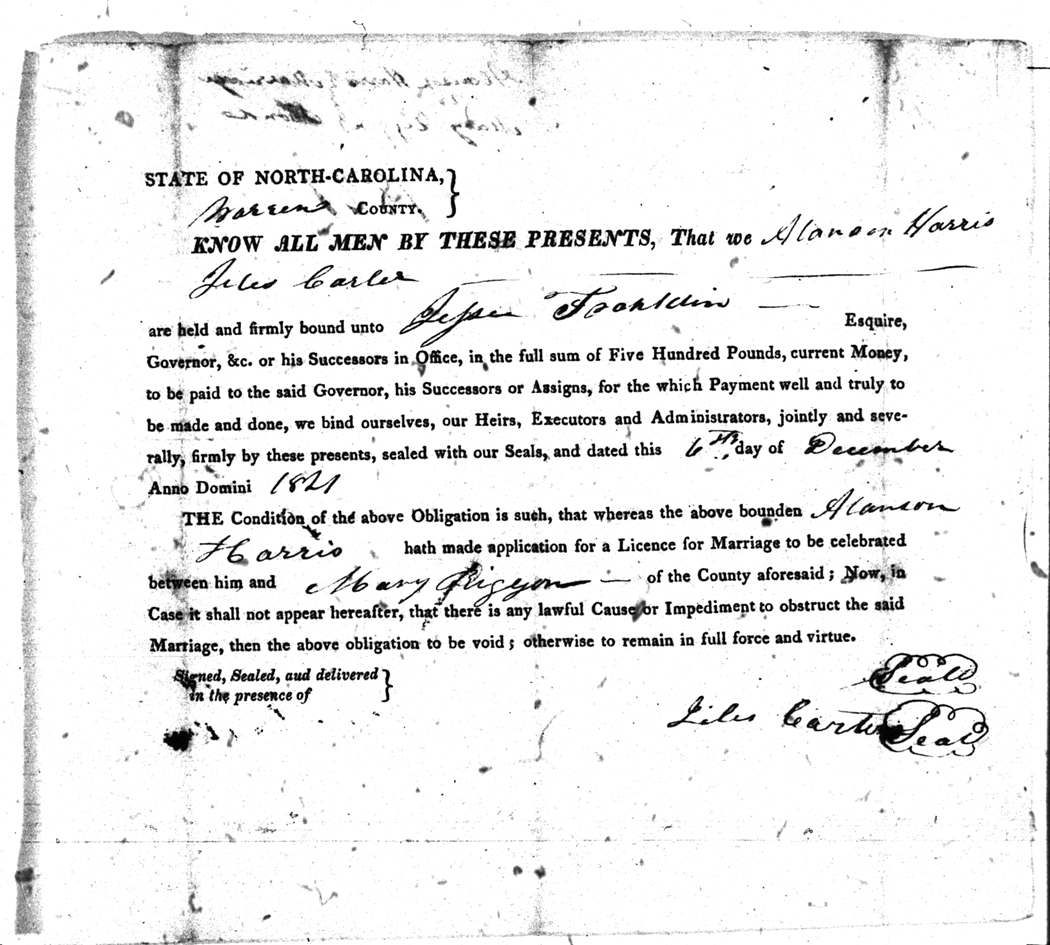 STATE OF NORTH-CAROLINA,
Warren COUNTY.
KNOW ALL MEN BY THESE PRESENTS, That we Alanson Harris
Jiles Carter
are held and firmly bound unto Jesse Franklin Esquire,
Governor, &c. or his Successors in Office, in the full sum of Five Hundred Pounds, current Money,
to be paid to the said Governor, his Successors or Assigns, for the which Payment well and truly to
be made and done, we bind ourselves, our Heirs, Executors and Administrators, jointly and seve-
rally, firmly by these presents, sealed with our Seals, and dated this 6th day of December
Anno Domini 1821
THE Condition of the above Obligation is such, that whereas the above bounden Alanson
Harris hath made application for a Licence for Marriage to be celebrated
between him and Mary of the County aforesaid; Now, in
Case it shall not appear hereafter, that there is any lawful Cause or Impediment to obstruct the said
Marriage, then the above obligation to be void; otherwise to remain in full force and virtue.
Signed, Sealed, and delivered
in the presence of
Seal
Jiles Carter Seal